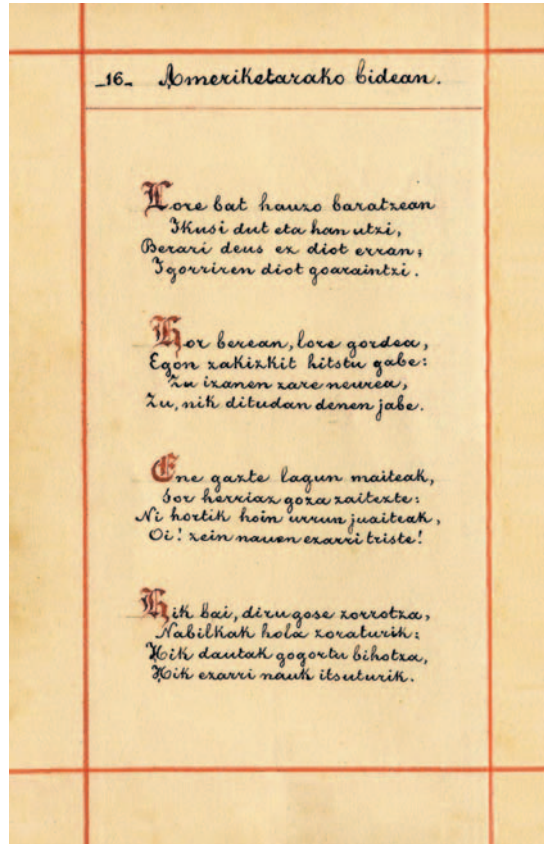 _16_ Ameriketarako bidean.
Lore bat hauzo baratzean
Ikusi dut eta han utzi,
Berari deus ez diot erran;
Igorriren diot goaraintzi.
Hor berean, lore gordea,
Egon zakizkit hitstu gabe:
Zu izanen zare neurea,
Zu, nik ditudan denen jabe.
Ene gazte lagun maiteak,
Sor herriaz goza zaitezte:
Ni hortik hoin urrun juaiteak,
Oi! zein nauen ezarri triste!
Hik bai, diru gose zorrotza,
Nabilkak hola zoraturik:
Hik dautak gogortu bihotza,
Hik ezarri nauk itsuturik.